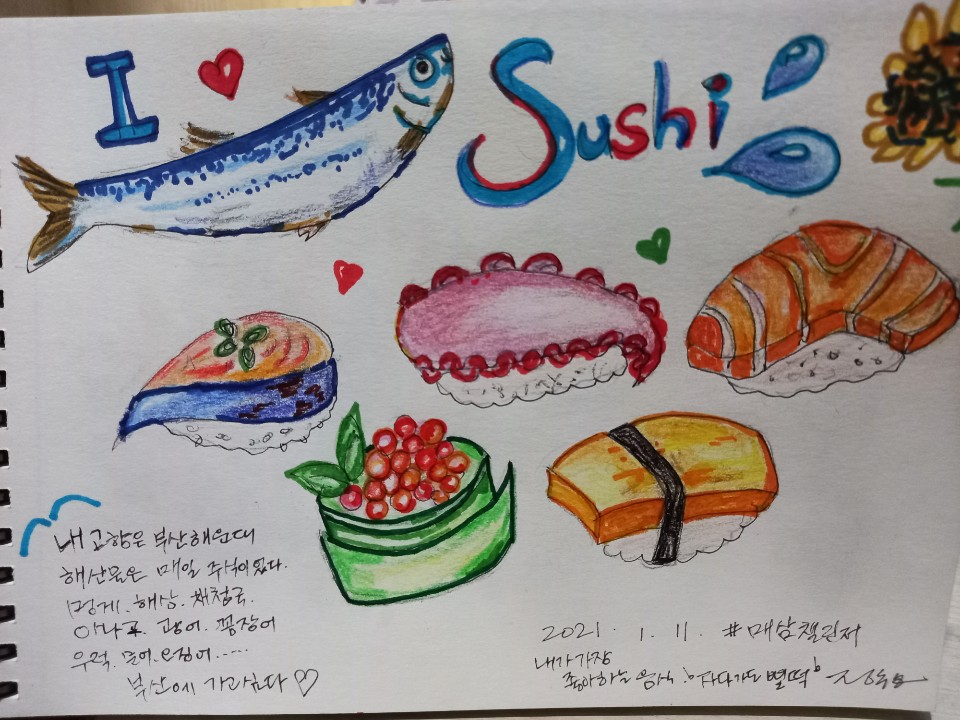 I Sushi
내 고향은 부산해운대
해산물은 매일 주식이었다.
멍게. 해삼. 재첩국.
아나고. 광어. 꼼장어
우럭. 문어. 오징어.....
부산에 가고싶다 ♡
2021. 1. 11. #매삼챌린저
내가 가장
좋아하는 음식 '자다가도 벌떡'